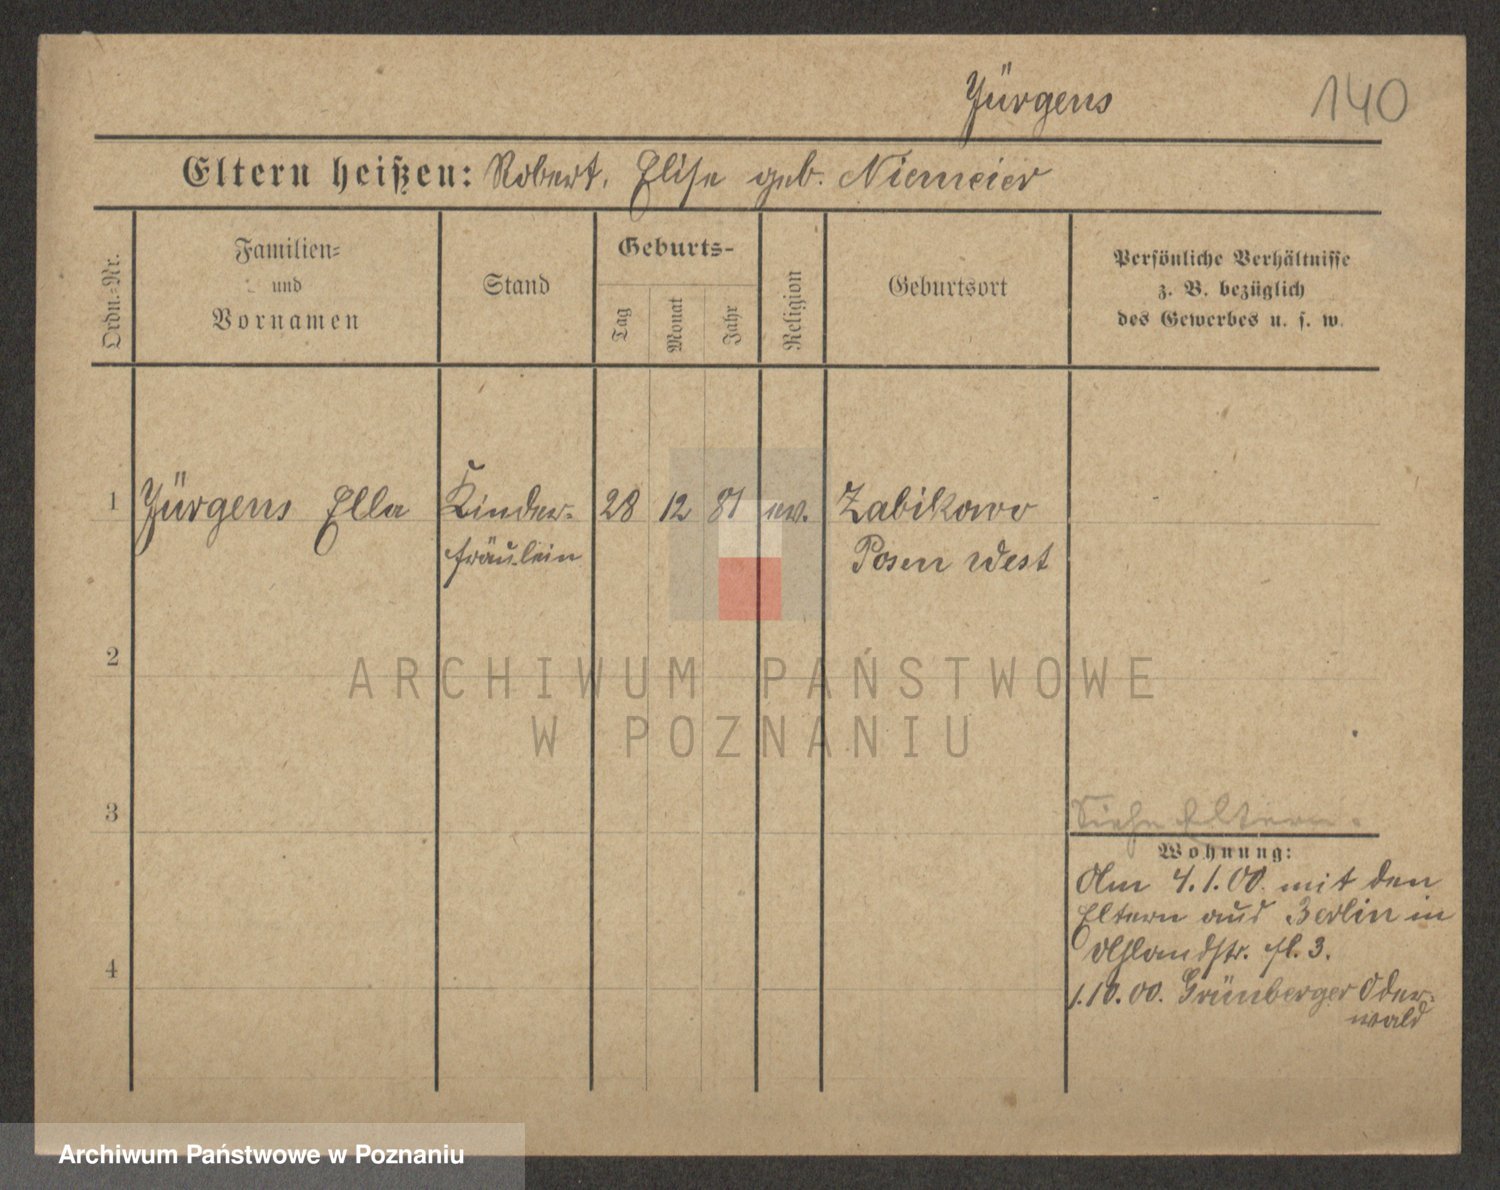 Jürgens 140
Eltern heißen: Robert, Elise geb. Niemeier
Ordn.-Nr.
Familien-
und
Vornamen
Stand
Geburts-
Tag
Monat
Jahr
Religion
Geburtsort
Persönliche Verhältnisse
z. B. bezüglich
des Gewerbes u. s. w.
1 Jürgens Ella Kinder- 28 12 81 ev. Zabikowo
fräulein Posen West
2
ARCHIWUM PAŃSTWOWE
W POZNANIU
3
Siehe Eltern.
Wohnung:
Am 4.1.00. mit den
Eltern aus Berlin in
4
1.10.00. Grünberger Oder-
wald
Archiwum Państwowe w Poznaniu